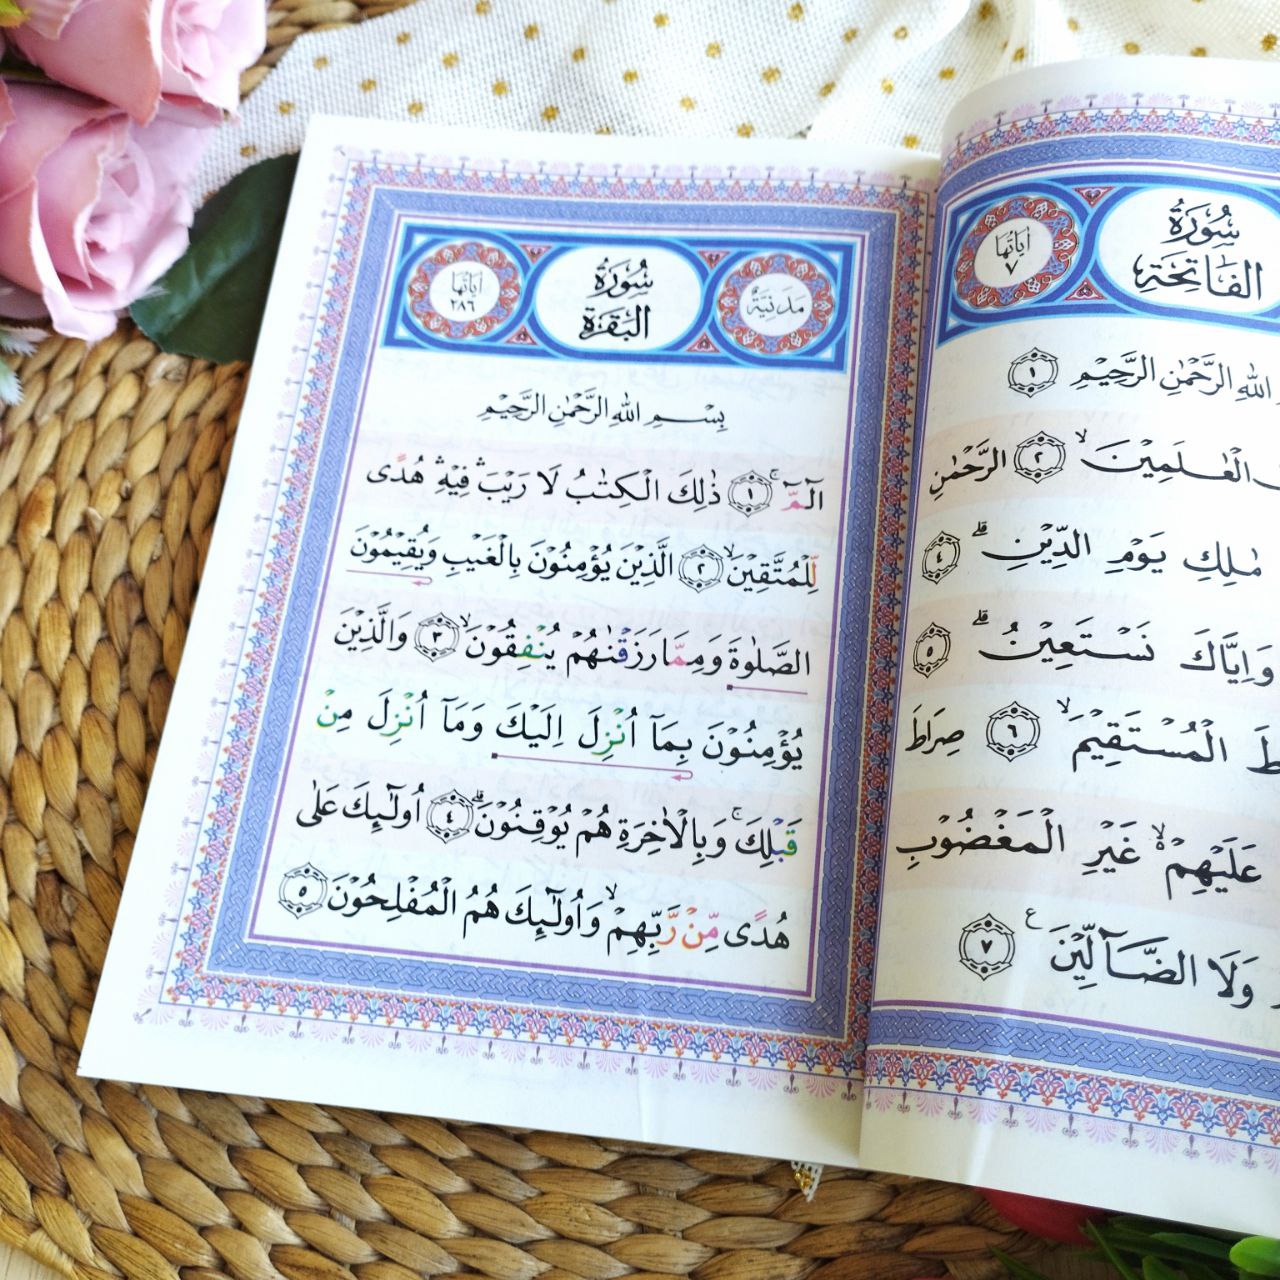 سُوْرَةُ
الفَاتِحَةِ
اٰيَاتُهَا
٧
اللهِ الرَّحْمٰنِ الرَّحِيْمِ ۝١
الْعٰلَمِيْنَۙ ۝٢ الرَّحْمٰنِ
مٰلِكِ يَوْمِ الدِّيْنِۗ ۝٤
وَاِيَّاكَ نَسْتَعِيْنُۗ ۝٥
الْمُسْتَقِيْمَۙ ۝٦ صِرَاطَ
عَلَيْهِمْ ۙ غَيْرِ الْمَغْضُوْبِ
وَلَا الضَّاۤلِّيْنَ ࣖ ۝٧
مَدَنِيَّةٌ
سُوْرَةُ
الْبَقَرَةِ
اٰيَاتُهَا
٢٨٦
بِسْمِ اللهِ الرَّحْمٰنِ الرَّحِيْمِ
الۤمّۤ ۚ ۝١ ذٰلِكَ الْكِتٰبُ لَا رَيْبَۛ فِيْهِۛ هُدًى
لِّلْمُتَّقِيْنَۙ ۝٢ الَّذِيْنَ يُؤْمِنُوْنَ بِالْغَيْبِ وَيُقِيْمُوْنَ
الصَّلٰوةَ وَمِمَّا رَزَقْنٰهُمْ يُنْفِقُوْنَۙ ۝٣ وَالَّذِيْنَ
يُؤْمِنُوْنَ بِمَآ اُنْزِلَ اِلَيْكَ وَمَآ اُنْزِلَ مِنْ
قَبْلِكَ ۚ وَبِالْاٰخِرَةِ هُمْ يُوْقِنُوْنَۗ ۝٤ اُولٰۤىِٕكَ عَلٰى
هُدًى مِّنْ رَّبِّهِمْۙ وَاُولٰۤىِٕكَ هُمُ الْمُفْلِحُوْنَ ۝٥